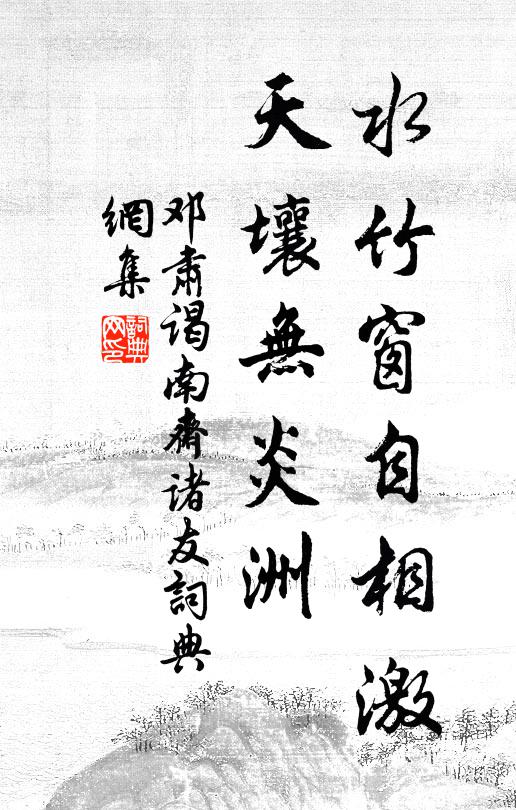 水竹窗自相激
天壤無炎洲
邓肃谒南齋诸友詞典
網集
詞典
网印